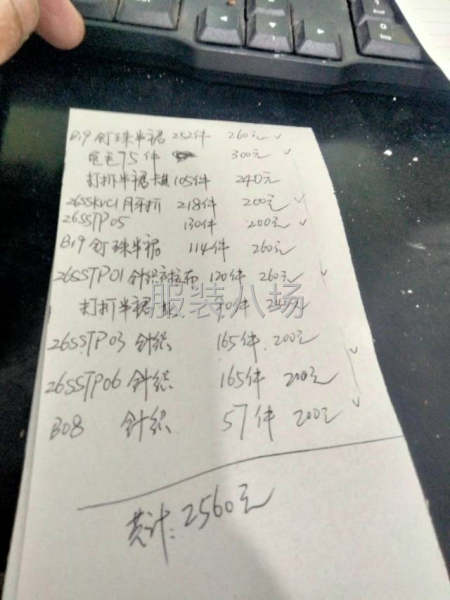 B19 钉珠半裙 252件 260元
电毛75件 300元
打折半裙 105件 240元
26SSKVC1月牙折 218件 200元
26SSTP05 130件 200元
B19 钉珠半裙 114件 260元
26SSTP01 针织 拉布 120件 260元
打折半裙 40元
26SSTP03 针织 165件 200元
26SSTP06 针织 165件 200元
B08 针织 57件 200元
共计：2560元
服装八场